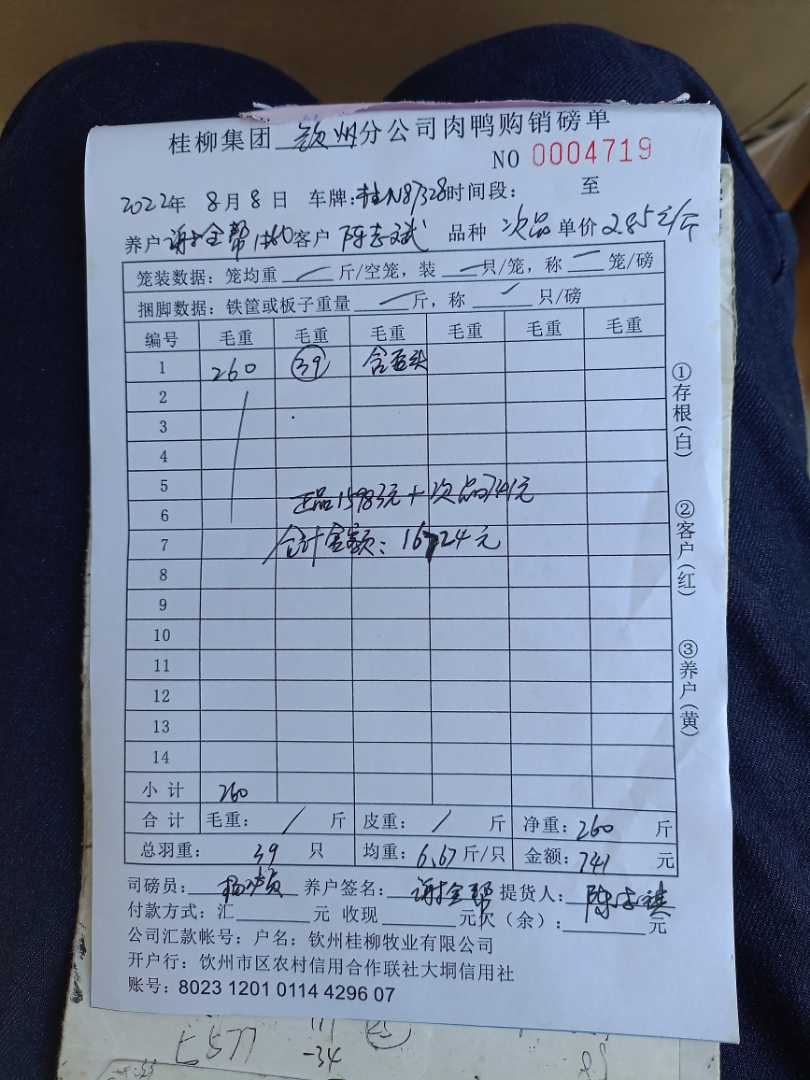 桂柳集团 钦州 分公司肉鸭购销磅单
NO 0004719
2022年 8月 8日 车牌:桂N87328时间段: 至
养户 谢金帮 客户 陈志斌 品种 次品 单价 2.85元/斤
笼装数据: 笼均重 斤/空笼, 装 只/笼, 称 笼/磅
捆脚数据: 铁筐或板子重量 斤, 称 只/磅
编号 毛重 毛重 毛重 毛重 毛重 毛重
1 260 39
2
3
4
5
正品15983元+次品741元
6
7 合计金额: 16724元
8
9
10
11
12
13
14
小计 260
合计 毛重: / 斤 皮重: / 斤 净重: 260 斤
总羽重: 39 只 均重: 6.67 斤/只 金额: 741 元
司磅员: 养户签名: 谢金帮 提货人:
付款方式: 汇 元 收现 元欠(余): 元
公司汇款帐号: 户名: 钦州桂柳牧业有限公司
开户行: 钦州市区农村信用合作联社大垌信用社
账号: 8023 1201 0114 4296 07
①存根(白)
②客户(红)
③养户(黄)
5577
-34